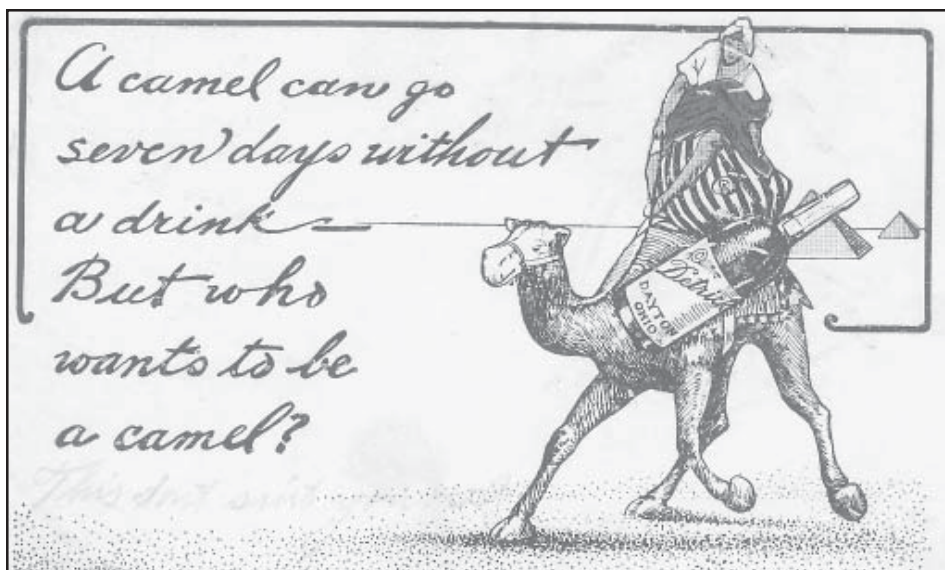 A camel can go
seven days without
a drink —
But who
wants to be
a camel?
DAYTON
OHIO